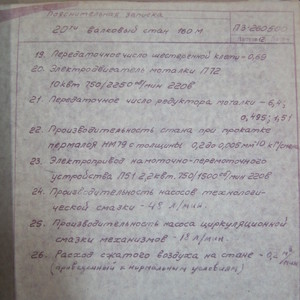 Пояснительная записка
20ти валковый стан 160 м
19. Передаточное число шестеренной клети - 0,68
20. Электродвигатель моталки П72
10 квт 750/2250 об/мин 220в
21. Передаточное число редуктора моталки - 6,4;
0,195; 1,51
22. Производительность стана при прокатке
пермалоя НМ79 с толщины 0,2 до 0,005 мм
23. Электропривод намоточно-перемоточного
устройства П51 2,2 квт 750/1500 об/мин 220в
24. Производительность насосов технологи-
ческой смазки - 45 л/мин.
25. Производительность насоса циркуляционной
смазки механизмов - 18 л/мин.
26. Расход сжатого воздуха на стане
(приведенный к нормальным условиям)